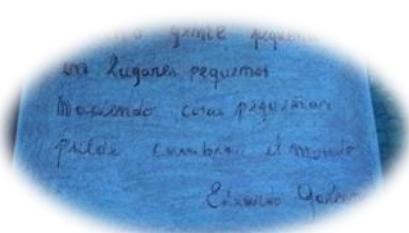 gente pequeña
en lugares pequeños
haciendo cosas pequeñas
puede cambiar el mundo
Eduardo